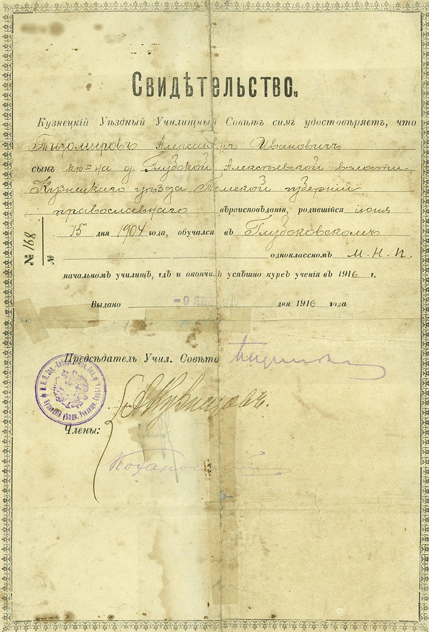 Свидѣтельство.
Кузнецкій Уѣздный Училищный Совѣтъ симъ удостовѣряетъ, что
Тихомировъ Александръ Ивановичъ
сынъ кр-на д Глубокой Алексѣевской волости
Кузнецкаго уѣзда Томской губерніи
православнаго вѣроисповѣданія, родившійся іюня
15 дня 1904 года, обучался въ Глубоковскомъ
одноклассномъ М. Н. П.
начальномъ училищѣ, гдѣ и окончилъ успѣшно курсъ ученія въ 1916 г.
№ 168
Выдано дня 1916 года
Предсѣдатель Учил. Совѣта
Члены: